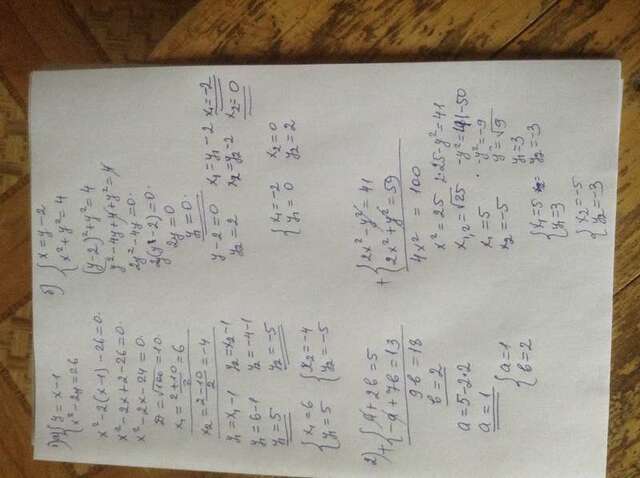 1)а) { y = x-1
x² - 2y = 26
x² - 2(x-1) - 26 = 0
x² - 2x + 2 - 26 = 0
x² - 2x - 24 = 0
D = √100 = 10
x₁ = (2+10)/2 = 6
x₂ = (2-10)/2 = -4
y₁ = x₁ - 1 y₂ = x₂ - 1
y₁ = 6 - 1 y₂ = -4 - 1
y₁ = 5 y₂ = -5
{ x₁ = 6 { x₂ = -4
y₁ = 5 y₂ = -5
б) { x = y - 2
x² + y² = 4
(y-2)² + y² = 4
y² - 4y + 4 + y² = 4
2y² - 4y = 0
2y(y - 2) = 0
2y = 0
y₁ = 0
y - 2 = 0 x₁ = y₁ - 2 x₁ = -2
y₂ = 2 x₂ = y₂ - 2 x₂ = 0
{ x₁ = -2 x₂ = 0
y₁ = 0 y₂ = 2
2) + { a + 2b = 5
-a + 7b = 13
9b = 18
b = 2
a = 5 - 2·2
a = 1
{ a = 1
b = 2
+ { 2x² - y² = 41
2x² + y² = 59
4x² = 100
x² = 25 2·25 - y² = 41
x₁,₂ = √25 -y² = 41 - 50
x₁ = 5 -y² = -9
x₂ = -5 y = √9
y₁ = 3
{ x₁ = 5 y₂ = -3
y₁ = 3
{ x₂ = -5
y₂ = -3